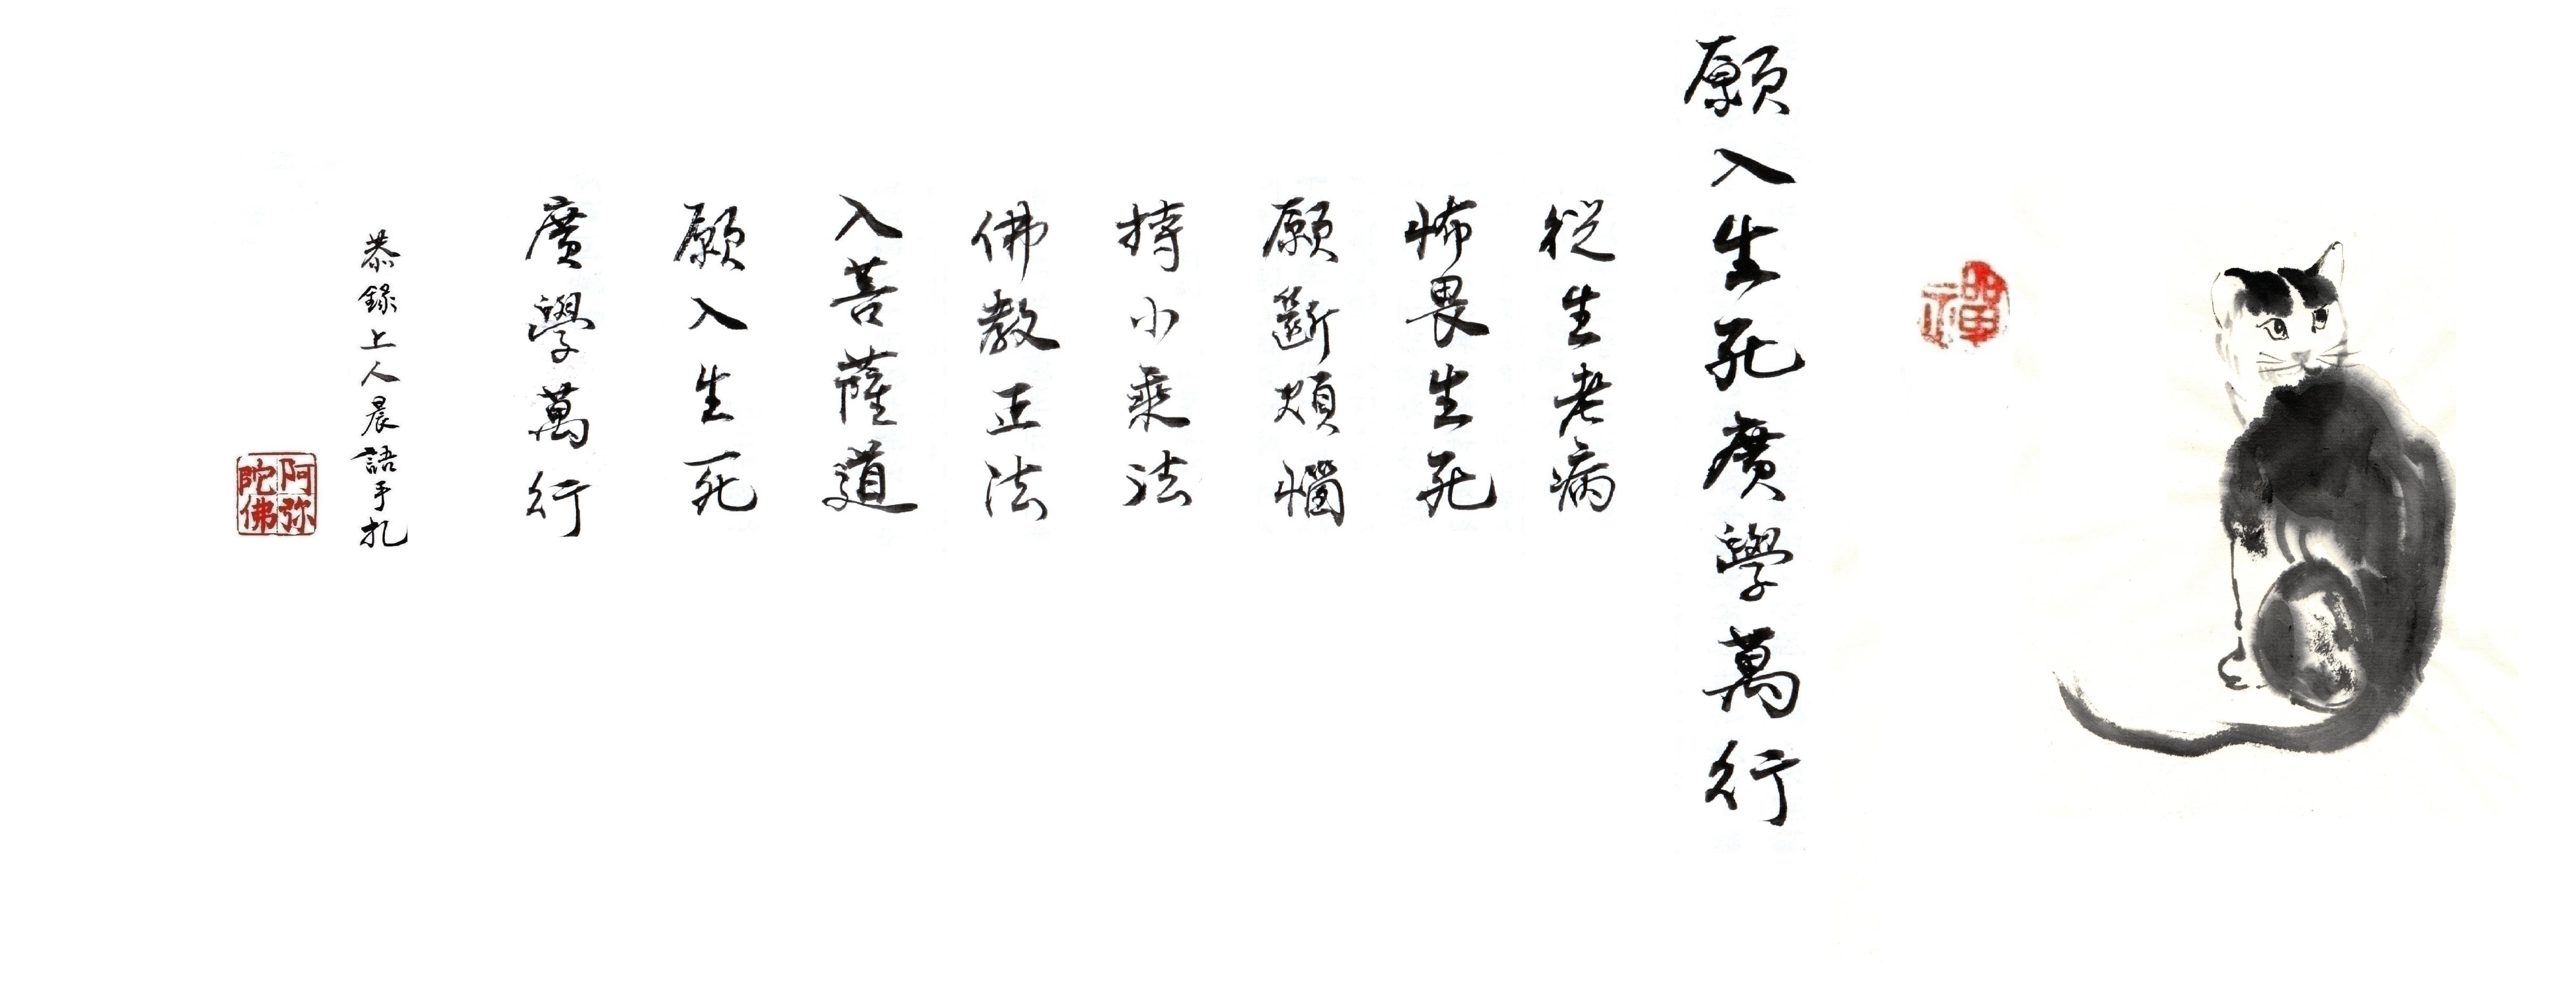 禪
願入生死廣學萬行
從生老病
怖畏生死
願斷煩惱
持小乘法
佛教正法
入菩薩道
願入生死
廣學萬行
恭錄上人晨語手札
阿弥陀佛